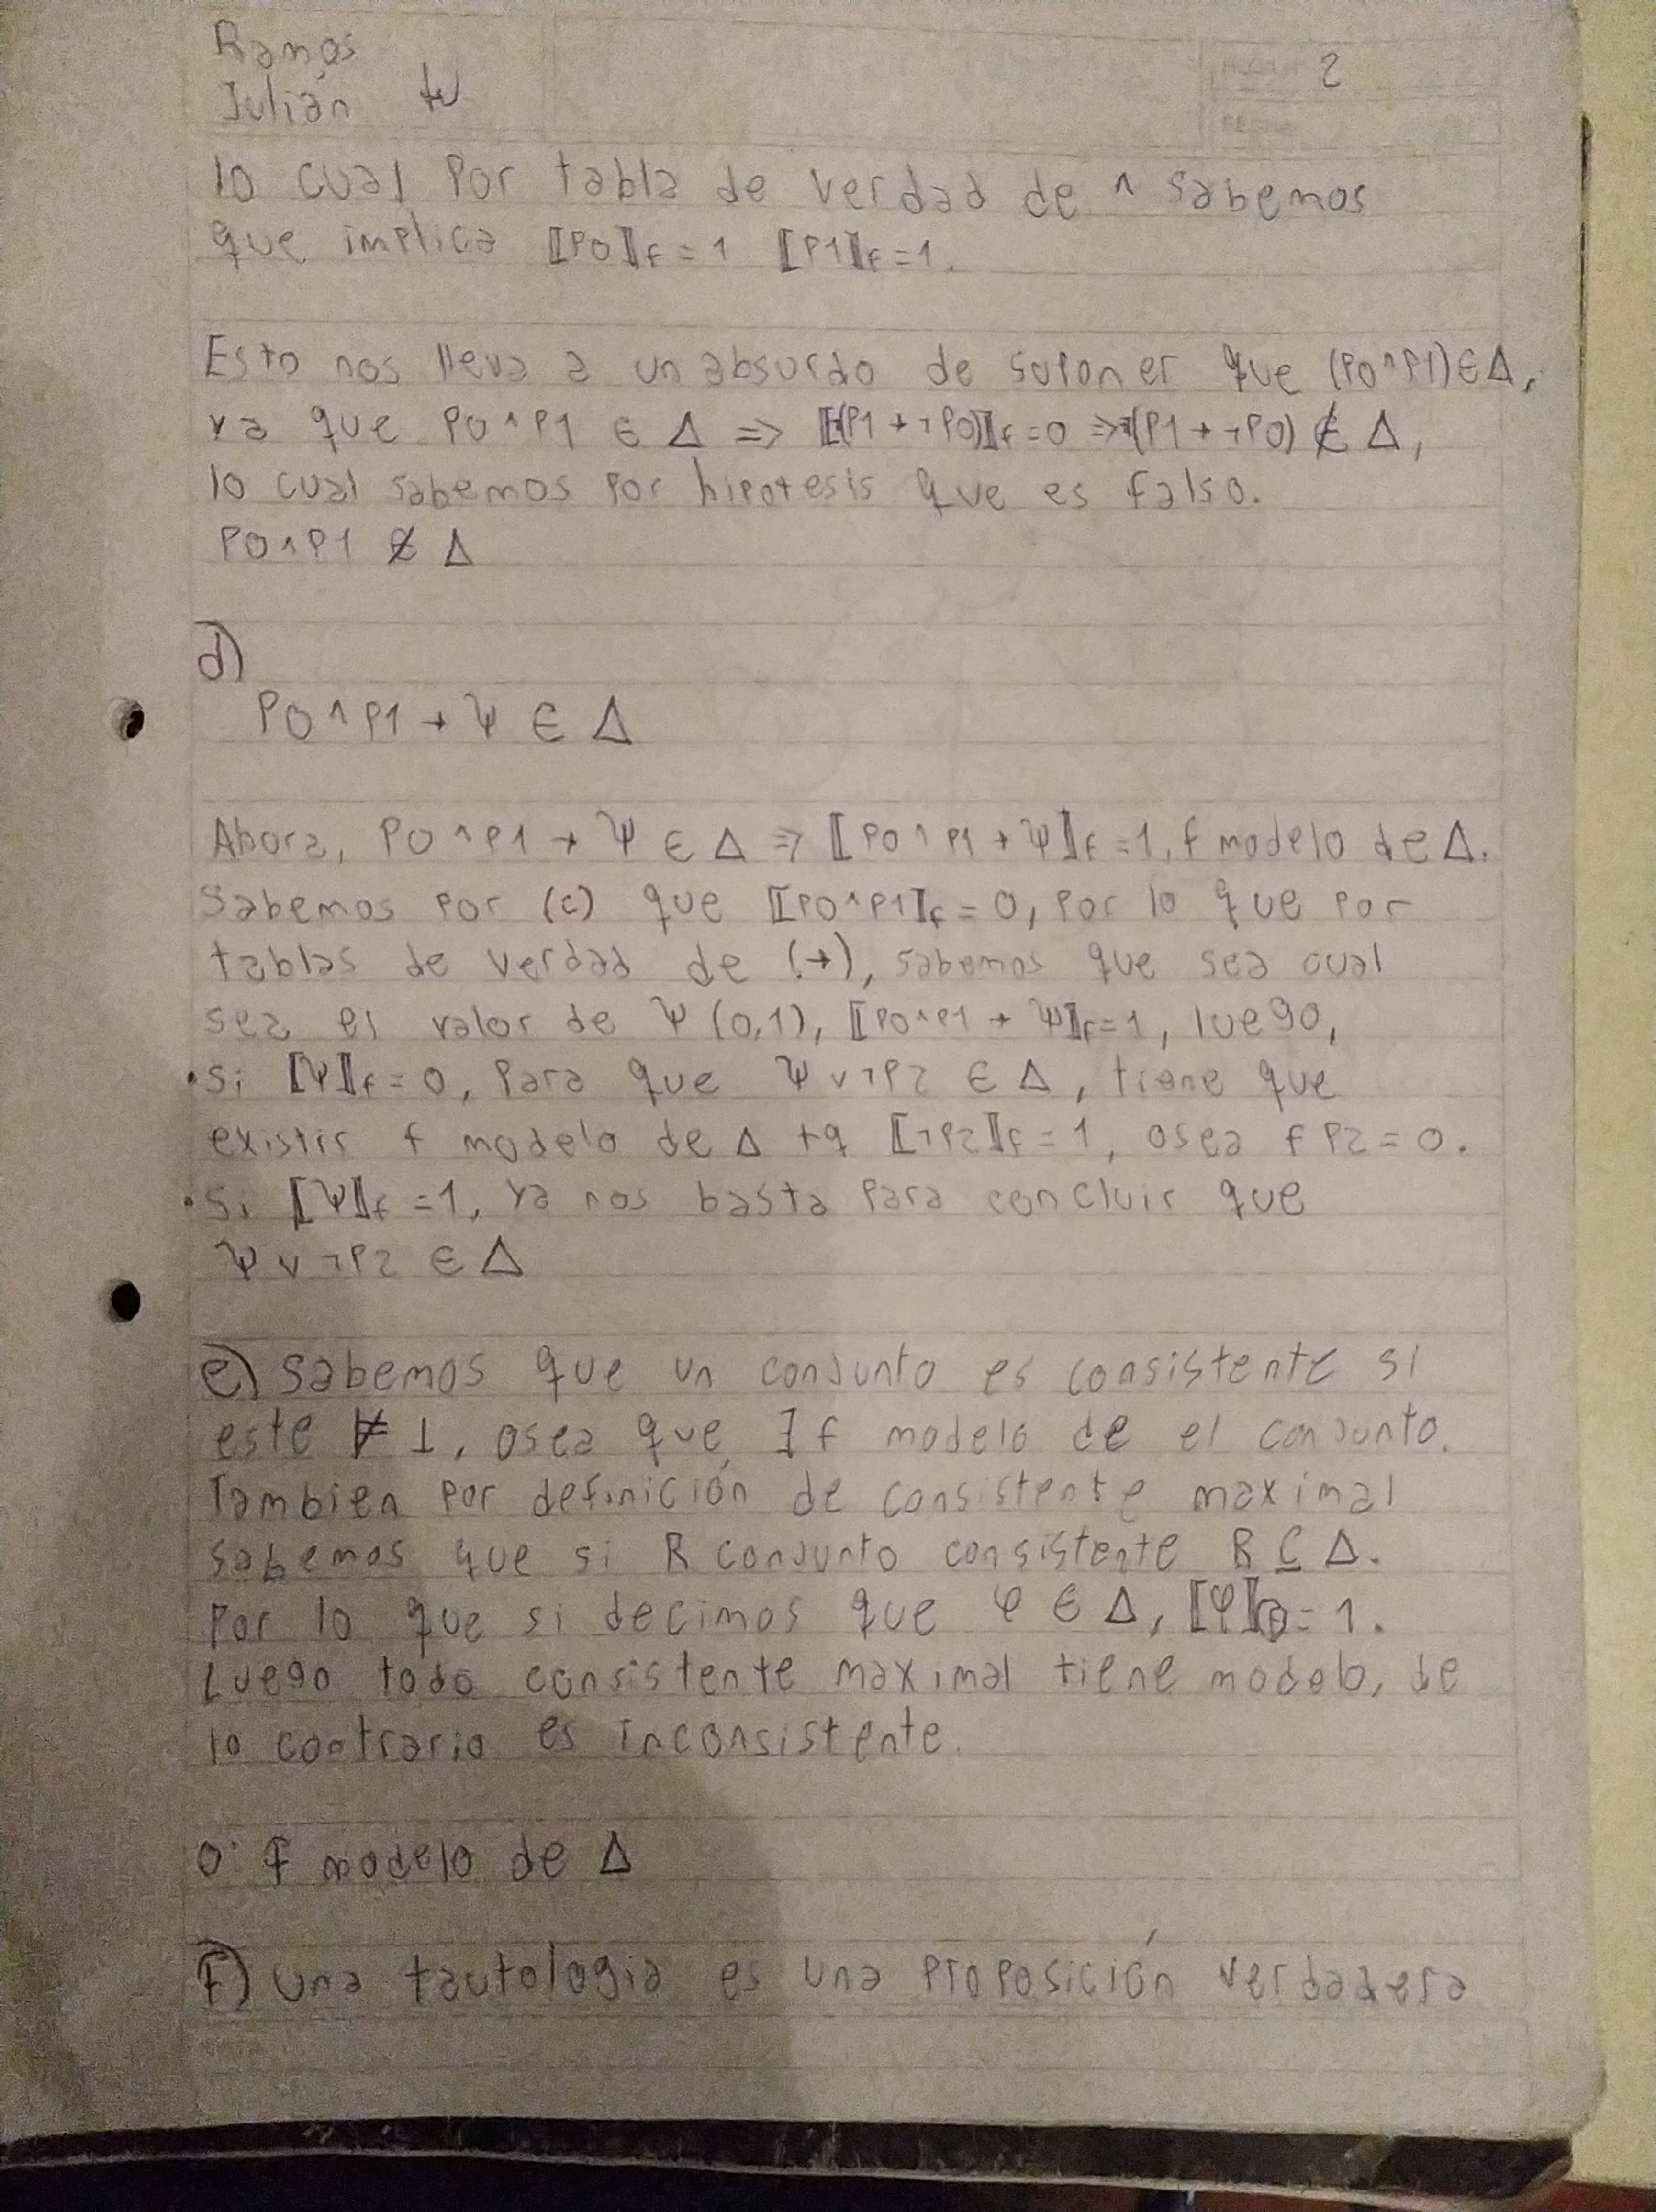 Ramos
Julián
2
lo cual por tabla de verdad de ∧ sabemos
que implica ⟦P0⟧f = 1 ⟦P1⟧f = 1.
Esto nos lleva a un absurdo de suponer que (P0∧P1)∈Δ,
ya que P0∧P1 ∈ Δ ⇒ ⟦(P1→¬P0)⟧f = 0 ⇒ (P1→¬P0) ∉ Δ,
lo cual sabemos por hipotesis que es falso.
P0∧P1 ∉ Δ
d)
P0∧P1→Ψ ∈ Δ
Ahora, P0∧P1→Ψ ∈ Δ ⇒ ⟦P0∧P1→Ψ⟧f = 1, f modelo de Δ.
Sabemos por (c) que ⟦P0∧P1⟧f = 0, por lo que por
tablas de verdad de (→), sabemos que sea cual
sea el valor de Ψ (0,1), ⟦P0∧P1→Ψ⟧f = 1, luego,
• Si ⟦Ψ⟧f = 0, para que Ψ∨¬P2 ∈ Δ, tiene que
existir f modelo de Δ tq ⟦¬P2⟧f = 1, osea f P2 = 0.
• Si ⟦Ψ⟧f = 1, ya nos basta para concluir que
Ψ∨¬P2 ∈ Δ
e) Sabemos que un conjunto es consistente si
este ⊬ ⊥, osea que ∃ f modelo de el conjunto.
Tambien por definición de consistente maximal
sabemos que si R conjunto consistente R ⊆ Δ.
Por lo que si decimos que φ ∈ Δ, ⟦φ⟧ = 1.
Luego todo consistente maximal tiene modelo, de
lo contrario es inconsistente.
o: f modelo de Δ
f) una tautologia es una proposición verdadera